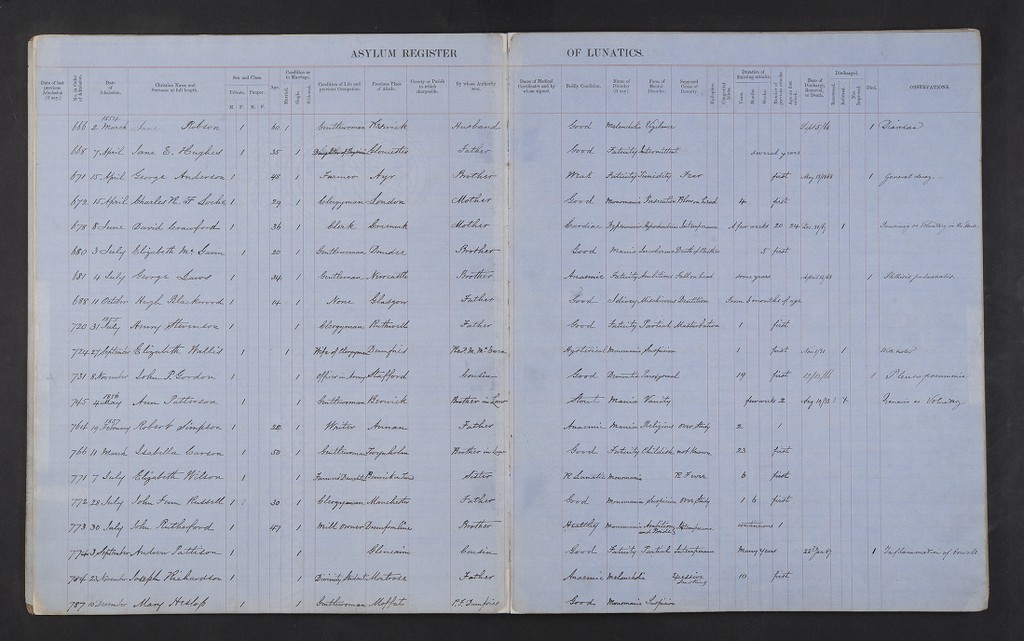 ASYLUM REGISTER OF LUNATICS.
Date of last previous Admission (if any). No. in Order of Admission. Date of Admission. Christian Name and Surname at full length. Sex and Class. Private. Pauper. M. F. M. F. Age. Condition as to Marriage. Married. Single. Widowed. Condition of Life and previous Occupation. Previous Place of Abode. County or Parish to which chargeable. By whose Authority sent. Dates of Medical Certificates and by whom signed. Bodily Condition. Form of Mental Disorder. Supposed Cause of Insanity. Epileptics. Congenital Idiots. Duration of Existing attacks. Years. Months. Weeks. Number of previous attacks. Age on first attack. Date of Discharge, Removal, or Death. Discharged. Recovered. Relieved. Not Improved. Died. OBSERVATIONS.
1854
666 2 March Jane Robson 1 60 1 Gentlewoman Keswick Husband Good Melancholia 1 Diarrhoea
668 7 April Jane E. Hughes 1 35 1 Gloucester Father Good Fatuity Intermittent several years
671 15 April George Anderson 1 45 1 Farmer Ayr Brother Weak Fatuity Timidity Fear first 1 General decay
672 15 April Charles N. F. Locke 1 29 1 Clergyman London Mother Good Monomania Blow on head 4 first
678 8 June David Crawford 1 36 1 Clerk Greenock Mother Cardiac Intemperance A few weeks 20 24 1
680 3 July Elizabeth Mc 1 20 1 Gentlewoman Dundee Brother Good Mania 5 first
681 4 July George Laws 1 34 1 Gentleman Newcastle Brother Anaemic Fatuity Ambitious Fall on head some years 1 Phthisis pulmonalis
688 11 October Hugh Blackwood 1 14 1 None Glasgow Father Good Idiocy Mischievous Dentition From 3 months of age
1855
720 31 July Henry Stevenson 1 1 Clergyman Ruthwell Father Good Fatuity Partial Masturbation 1 first
724 27 September Elizabeth Wallis 1 1 Wife of Clergyman Dumfries Hysterical Monomania Suspicion 1 first 1
731 8 November John P. Gordon 1 1 Officer in Army Stafford Cousin Good Dementia 19 first 1 Pleuro pneumonia
1856
745 4 May Ann Patterson 1 1 Gentlewoman Berwick Brother in Law Stout Mania Vanity few weeks 2 Remains as Voluntary
1857
764 19 February Robert Simpson 1 22 1 Writer Annan Father Anaemic Mania Religious Over Study 2 1
766 11 March Isabella Carson 1 50 1 Gentlewoman Brother in Law Good Fatuity Childish not known 23 first
771 7 July Elizabeth Wilson 1 1 Farmer's Daughter Sister Monomania 6 first
772 28 July John Russell 1 30 1 Clergyman Manchester Father Good Monomania Suspicion Over Study 1 6 first
773 30 July John Rutherford 1 47 1 Mill owner Dunfermline Brother Healthy Monomania Intemperance continuous 1
774 3 September Andrew Pattison 1 1 Glencairn Cousin Good Fatuity Partial Intemperance Many years 22 Jan 67 1 Inflammation of bowels
784 23 November Joseph Richardson 1 1 Divinity Student Montrose Father Anaemic Melancholia Excessive smoking 10 first
787 10 December Mary Heslop 1 1 Gentlewoman Moffat P.F. Dumfries Good Monomania Suspicion